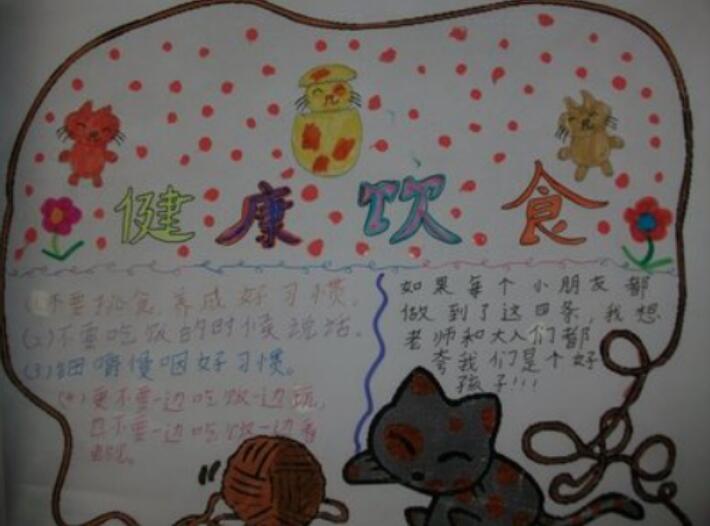 健康饮食
(1)不要挑食,养成好习惯。
(2)不要吃饭的时候说话。
(3)细嚼慢咽好习惯。
(4)更不要一边吃饭一边玩,
且不要一边吃饭一边看
电视。
如果每个小朋友都
做到了这四条,我想
老师和大人们都
夸我们是个好
孩子!!!